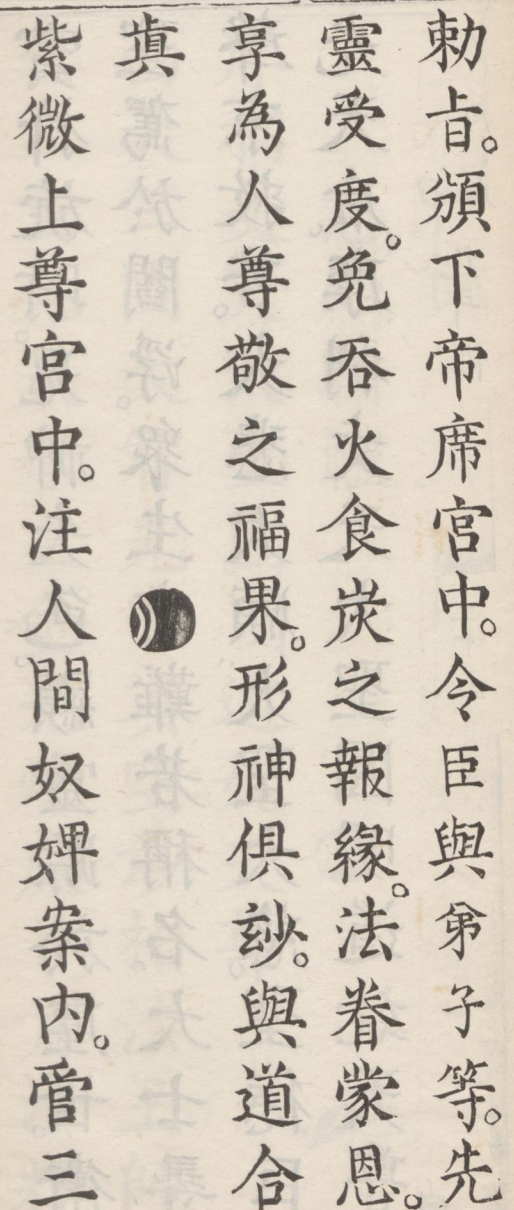 勅旨。頒下帝席宮中。令臣與弟子等。先
靈受度。免吞火食炭之報緣。法眷蒙恩。
享為人尊敬之福果。形神俱玅。與道合
真
紫微上尊宮中。注人間奴婢案內。管三